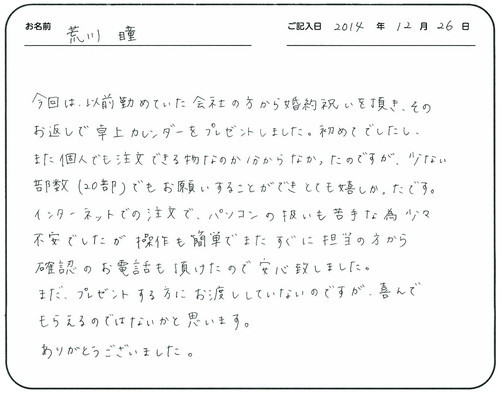 お名前 荒川 瞳 ご記入日 2014 年 12 月 26 日
今回は、以前勤めていた会社の方から婚約祝いを頂き、その
お返しで卓上カレンダーをプレゼントしました。初めてでしたし、
また個人でも注文できる物なのか分からなかったのですが、少ない
部数(20部)でもお願いすることができとても嬉しかったです。
インターネットでの注文で、パソコンの扱いも苦手な為少々
不安でしたが操作も簡単でまたすぐに担当の方から
確認のお電話も頂けたので安心致しました。
まだ、プレゼントする方にお渡ししていないのですが、喜んで
もらえるのではないかと思います。
ありがとうございました。